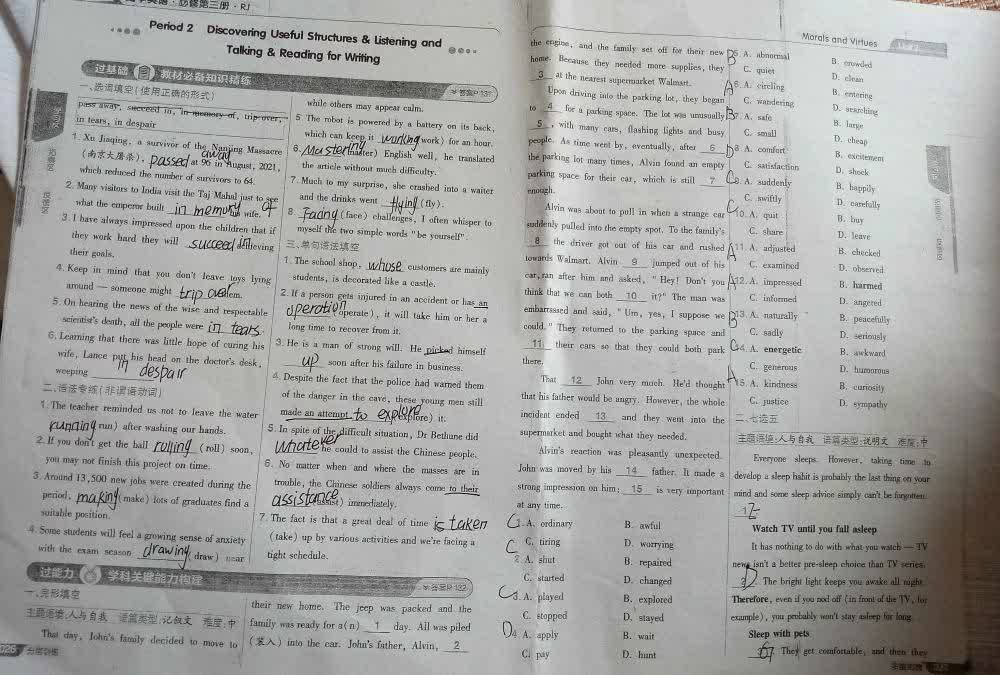 必修第三册·RJ
Period 2 Discovering Useful Structures & Listening and
Talking & Reading for Writing
过基础 教材必备知识精练
答案P131
一、选词填空(使用正确的形式)
pass away, succeed in, in memory of, trip over,
in tears, in despair
1. Xu Jiaqing, a survivor of the Nanjing Massacre
(南京大屠杀), passed away at 96 in August, 2021,
which reduced the number of survivors to 64.
2. Many visitors to India visit the Taj Mahal just to see
what the emperor built in memory of his wife.
3. I have always impressed upon the children that if
they work hard they will succeed in achieving
their goals.
4. Keep in mind that you don't leave toys lying
around — someone might trip over them.
5. On hearing the news of the wise and respectable
scientist's death, all the people were in tears.
6. Learning that there was little hope of curing his
wife, Lance put his head on the doctor's desk,
weeping in despair
二、语法专练(非谓语动词)
1. The teacher reminded us not to leave the water
running (run) after washing our hands.
2. If you don't get the ball rolling (roll) soon,
you may not finish this project on time.
3. Around 13,500 new jobs were created during the
period, making (make) lots of graduates find a
suitable position.
4. Some students will feel a growing sense of anxiety
with the exam season drawing (draw) near
while others may appear calm.
5. The robot is powered by a battery on its back,
which can keep it working (work) for an hour.
6. Mastering (master) English well, he translated
the article without much difficulty.
7. Much to my surprise, she crashed into a waiter
and the drinks went flying (fly).
8. Facing (face) challenges, I often whisper to
myself the two simple words "be yourself".
三、单句语法填空
1. The school shop, whose customers are mainly
students, is decorated like a castle.
2. If a person gets injured in an accident or has an
operation (operate), it will take him or her a
long time to recover from it.
3. He is a man of strong will. He picked himself
up soon after his failure in business.
4. Despite the fact that the police had warned them
of the danger in the cave, these young men still
made an attempt to explore (explore) it.
5. In spite of the difficult situation, Dr Bethune did
whatever he could to assist the Chinese people.
6. No matter when and where the masses are in
trouble, the Chinese soldiers always come to their
assistance (assist) immediately.
7. The fact is that a great deal of time is taken
(take) up by various activities and we're facing a
tight schedule.
过能力 学科关键能力构建
答案P132
一、完形填空
主题语境:人与自我 语篇类型:记叙文 难度:中
That day, John's family decided to move to
their new home. The jeep was packed and the
family was ready for a(n) 1 day. All was piled
(装入) into the car. John's father, Alvin, 2
026 分层训练
Morals and Virtues
the engine, and the family set off for their new
home. Because they needed more supplies, they
3 at the nearest supermarket Walmart.
Upon driving into the parking lot, they began
to 4 for a parking space. The lot was unusually
5, with many cars, flashing lights and busy
people. As time went by, eventually, after 6
the parking lot many times, Alvin found an empty
parking space for their car, which is still 7
enough.
Alvin was about to pull in when a strange car
suddenly pulled into the empty spot. To the family's
8 the driver got out of his car and rushed
towards Walmart. Alvin 9 jumped out of his
car, ran after him and asked, "Hey! Don't you
think that we can both 10 it?" The man was
embarrassed and said, "Um, yes, I suppose we
could." They returned to the parking space and
11 their cars so that they could both park
there.
That 12 John very much. He'd thought
that his father would be angry. However, the whole
incident ended 13 and they went into the
supermarket and bought what they needed.
Alvin's reaction was pleasantly unexpected.
John was moved by his 14 father. It made a
strong impression on him; 15 is very important
at any time.
C 1. A. ordinary B. awful
C. tiring D. worrying
C 2. A. shut B. repaired
C. started D. changed
C 3. A. played B. explored
C. stopped D. stayed
D 4. A. apply B. wait
C. pay D. hunt
B 5. A. abnormal B. crowded
C. quiet D. clean
A 6. A. circling B. entering
C. wandering D. searching
B 7. A. safe B. large
C. small D. cheap
D 8. A. comfort B. excitement
C. satisfaction D. shock
C 9. A. suddenly B. happily
C. swiftly D. carefully
C 10. A. quit B. buy
C. share D. leave
A 11. A. adjusted B. checked
C. examined D. observed
A 12. A. impressed B. harmed
C. informed D. angered
B 13. A. naturally B. peacefully
C. sadly D. seriously
C 14. A. energetic B. awkward
C. generous D. humorous
A 15. A. kindness B. curiosity
C. justice D. sympathy
二、七选五
主题语境:人与自我 语篇类型:说明文 难度:中
Everyone sleeps. However, taking time to
develop a sleep habit is probably the last thing on your
mind and some sleep advice simply can't be forgotten.
1 E
Watch TV until you fall asleep
It has nothing to do with what you watch — TV
news isn't a better pre-sleep choice than TV series.
D. The bright light keeps you awake all night.
Therefore, even if you nod off (in front of the TV, for
example), you probably won't stay asleep for long.
Sleep with pets
They get comfortable, and then they